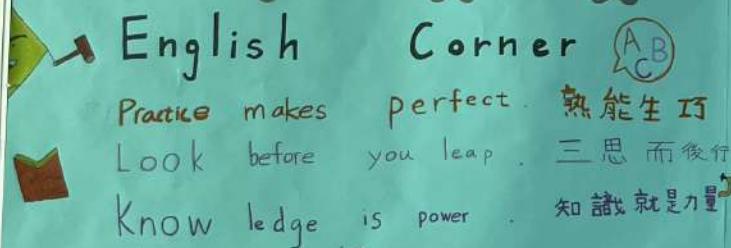 English Corner ABC
Practice makes perfect. 熟能生巧
Look before you leap. 三思而後行
Know ledge is power. 知識就是力量